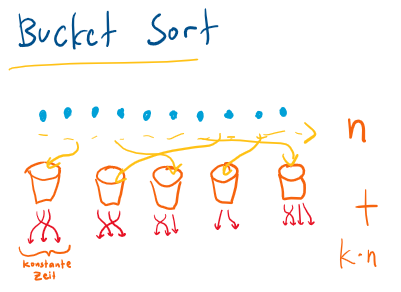 Bucket Sort
n
+
k·n
Konstante
Zeit